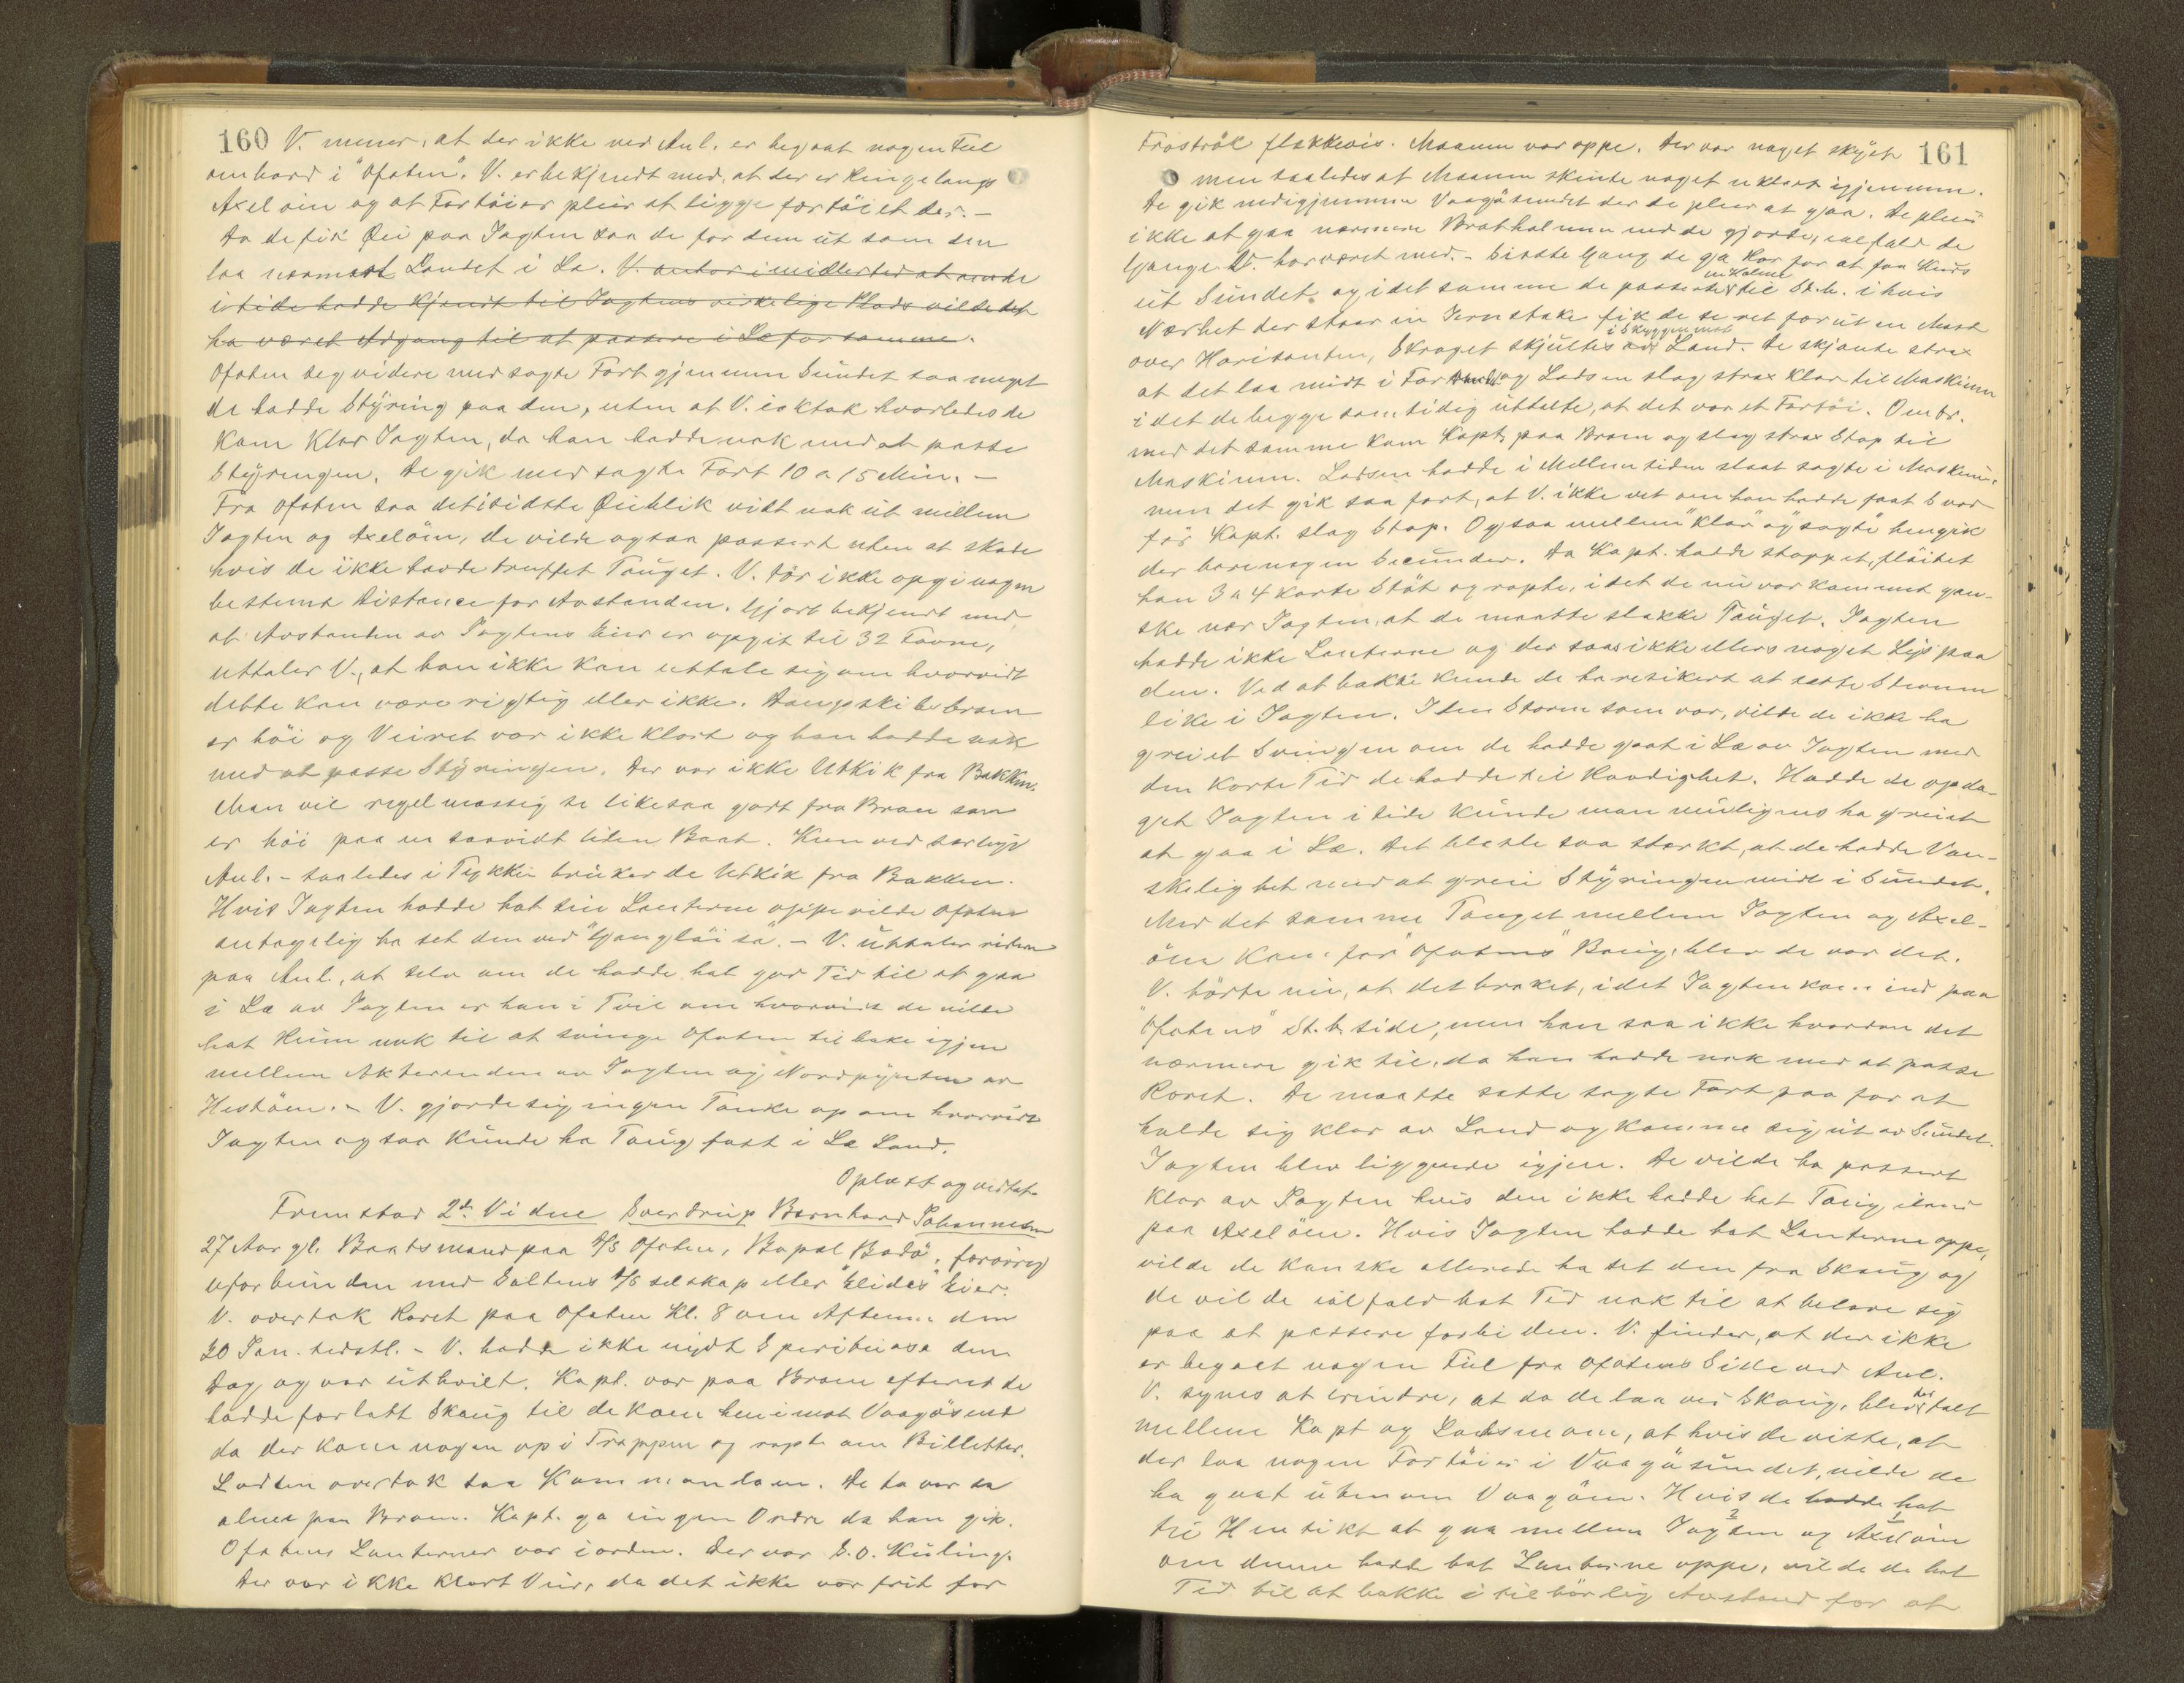 160 V. mener, at der ikke ved Anl. er begaat nogen Feil
ombord i "Ofoten". V. er bekjendt med, at der er Ringe langs
Axelöin og at Fartöier pleier at ligge fortöiet der. –
Da de fik Öie paa Jagten saa de for dem ut som den
laa nærmest Landet i Læ. V. antar imidlertid at om de
i tide hadde kjendt til Jagtens virkelige Plads vilde det
ha været Adgang til at passere i Læ for samme.
Ofoten seg videre med sagte Fart gjennem Sundet saa meget
de hadde Styring paa den, uten at V. iakttok hvorledes de
kom klar Jagten, da han hadde nok med at passe
Styringen. De gik med sagte Fart 10 a 15 Min. –
Fra Ofoten saa det i sidste Öieblik vidt nok ut mellem
Jagten og Axelöin, de vilde ogsaa passert uten at skade
hvis de ikke hadde truffet Tauget. V. tör ikke opgi nogen
bestemt Distance for Avstanden. Gjort bekjendt med
at Avstanden av Jagtens Eier er opgit til 32 Favne,
uttaler V., at han ikke kan uttale sig om hvorvidt
dette kan være rigtig eller ikke. Dampskibsbroen
er höi og Veiret var ikke klart og han hadde nok
med at passe Styringen. Der var ikke Utkik fra Bakken.
Man vil regelmæssig se likesaa godt fra Broen som
er höi paa en saavidt liten Baat. Kun ved særlige
Anl. – saaledes i Tykke bruker de Utkik fra Bakken.
Hvis Jagten hadde hat sin Lanterne oppe vilde Ofoten
antagelig ha set den ved "Gangläisa". – V. uttaler videre
paa Anl., at selv om de hadde hat god Tid til at gaa
i Læ av Jagten er han i Tvil om hvorvidt de vilde
hat Rum nok til at svinge Ofoten tilbake igjen
mellem Akterenden av Jagten og Nordpynten av
Hestöen. – V. gjorde sig ingen Tanke op om hvorvidt
Jagten ogsaa kunde ha Taug fast i Læ Land.
Oplæst og vedtat.
Fremstod 2det Vidne Sverdrup Bernhard Johannesen
27 Aar gl. Baatsmand paa D/S Ofoten, Bopæl Bodö, forövrig
uforbunden med Saltens D/S selskap eller "Elida's" Eier.
V. overtok Roret paa Ofoten Kl. 8 om Aftenen den
20 Jan. sidstl. – V. hadde ikke nydt Spirituosa den
Dag og var uthvilt. Kapt. var paa Broen efterat de
hadde forlatt Skaug til de kom hen imot Vaagösund
da der kom nogen op i Trappen og ropte om Billetter.
Lodsen overtok saa Kommandoen. De to var da
alene paa Broen. Kapt. ga ingen Ordre da han gik.
Ofotens Lanterner var i orden. Der var S.O. Kuling.
Der var ikke klart Veir, da det ikke var frit for
161
Froströk flakkevis. Maanen var oppe. Der var noget skyet
men saaledes at Maanen skinte noget uklart igjennem.
De gik ned igjennem Vaagösundet der de pleier at gaa. De pleier
ikke at gaa nærmere Bratholmen end de gjorde, ialfald de
Gange V. har været med. – Sidste Gang de ga Ror for at faa Kurs
ut Sundet og i det samme de passerte en Holme til St.b. i hvis
Nærhet der staar en Jernstake fik de se ret forut en Mast
over Horisonten, Skroget skjultes i Skyggen mot Land. De skjönte strax
at det laa midt i Farvandet og Lodsen slog strax klar til Maskinen
idet de begge samtidig uttalte, at det var et Fartöi. Omtr.
med det samme kom Kapt. paa Broen og slog strax Stop til
Maskinen. Lodsen hadde i Mellemtiden slaat sagte i Maskinen,
men det gik saa fort, at V. ikke vet om han hadde faat Svar
för Kapt. slog Stop. Ogsaa mellem "klar" og "sagte" hengik
der bare nogen Secunder. Da Kapt. hadde stoppet, flöitet
han 3 a 4 korte Stöt og ropte, idet de nu var kommet gan-
ske nær Jagten, at de maatte slakke Tauget. Jagten
hadde ikke Lanterne og der saas ikke ellers noget Lys paa
den. Ved at bakke kunde de ha resikert at sætte Stevnen
like i Jagten. I den Storm som var, vilde de ikke ha
greiet Svingen om de hadde gaat i Læ av Jagten med
den korte Tid de hadde til Raadighet. Hadde de opda-
get Jagten i tide kunde man muligens ha greiet
at gaa i Læ. Det blaaste saa sterkt, at de hadde Van-
skelighet med at greie Styringen midt i Sundet.
Med det samme Tauget mellem Jagten og Axel-
öin kom for "Ofotens" Baug, blev de var det.
V. hörte nu, at det braket, idet Jagten kom ind paa
"Ofotens" St.b. side, men han saa ikke hvordan det
nærmere gik til, da han hadde nok med at passe
Roret. De maatte sætte sagte Fart paa for at
holde sig klar av Land og komme sig ut av Sundet.
Jagten blev liggende igjen. De vilde ha passert
klar av Jagten hvis den ikke hadde hat Taug iland
paa Axelöen. Hvis Jagten hadde hat Lanterne oppe,
vilde de kanske allerede ha set den fra Skaug og
de vilde ialfald hat Tid nok til at belave sig
paa at passere forbi den. V. finder, at der ikke
er begaat nogen Feil fra Ofotens Side ved Anl.
V. synes at erindre, at da de laa ved Skaug, blev der talt
mellem Kapt og Lodsen om, at hvis de visste, at
der laa nogen Fartöier i Vaagösundet, vilde de
ha gaat utenom Vaagöen. Hvis de hadde hat
til Hensikt at gaa mellem Jagten og Axelöin
om denne hadde hat Lanterne oppe, vilde de hat
Tid til at bakke i tilbörlig Avstand for at